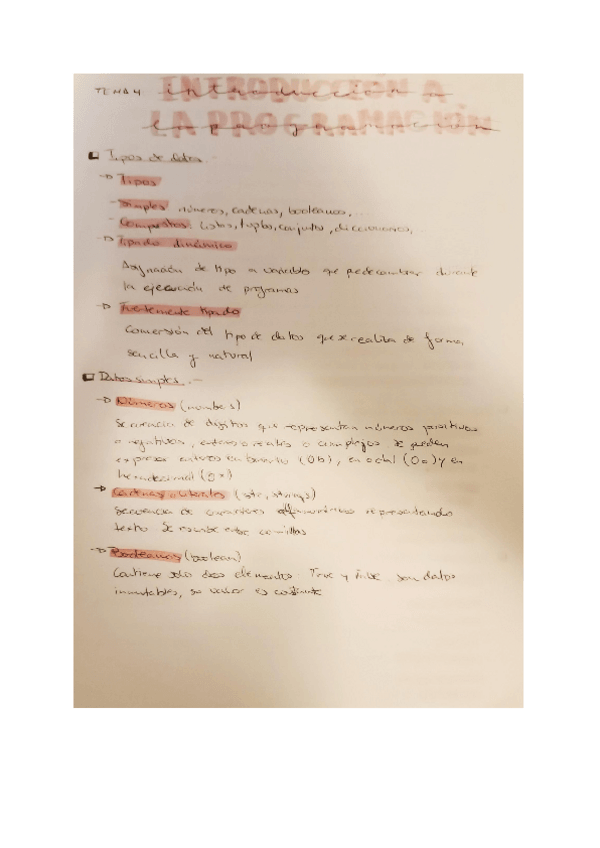 TEMA 4 INTRODUCCIÓN A
introducción a
LA PROGRAMACIÓN
la programación
Tipos de datos.-
→ Tipos
- Simples: números, cadenas, booleanos, ...
- Compuestos: listas, tuplas, conjuntos, diccionarios, ...
→ Tipado dinámico
Asignación de tipo a variables que puede cambiar durante
la ejecución de programas
→ Fuertemente tipado
Conversión del tipo de datos que se realiza de forma
sencilla y natural
Datos simples.-
→ Números (numbers)
Secuencia de dígitos que representan números positivos
o negativos, enteros o reales o complejos. Se pueden
expresar enteros en binario (0b), en octal (0o) y en
hexadecimal (0x)
→ Cadenas (str, strings)
Secuencia de caracteres alfanuméricos representando
texto. Se escribe entre comillas
→ Booleanos (boolean)
Contiene solo dos elementos True y False. Son datos
inmutables, su valor es constante